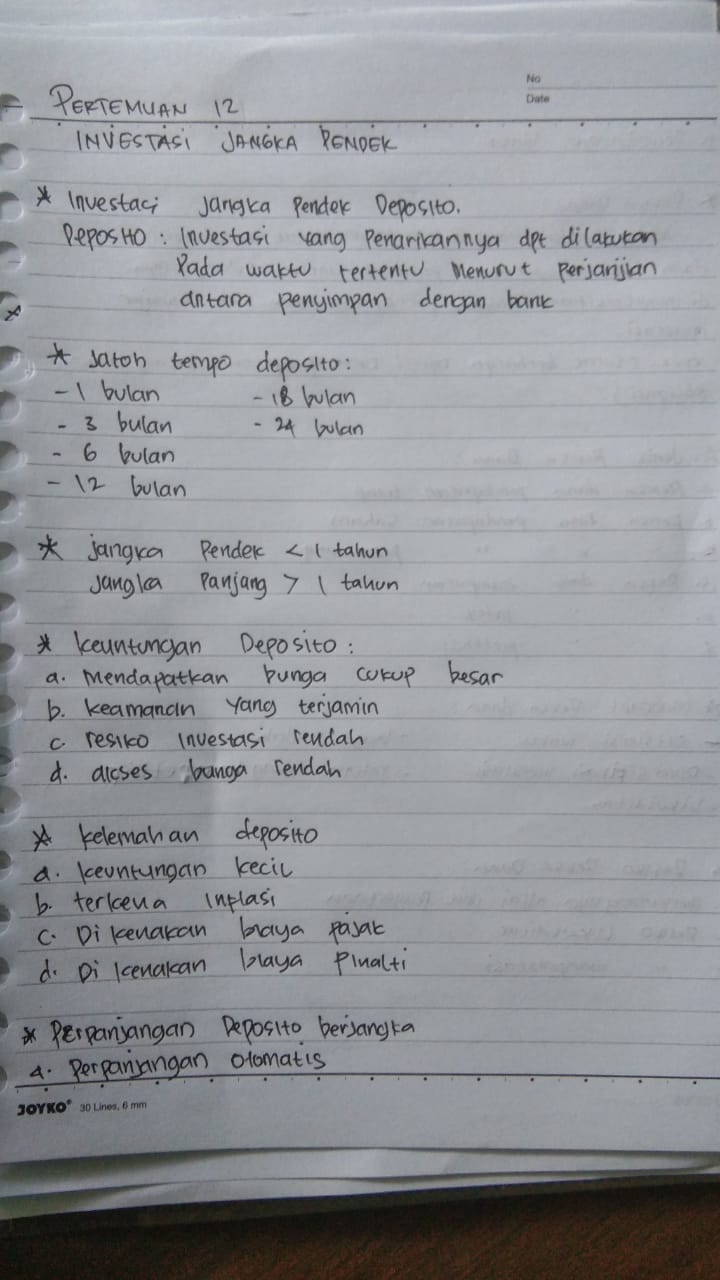 No
Date
PERTEMUAN 12
INVESTASI JANGKA PENDEK
* Investasi Jangka Pendek Deposito.
Deposito : Investasi yang Penarikannya dpt dilakukan
Pada waktu tertentu Menurut Perjanjian
antara penyimpan dengan bank
* Jatoh tempo deposito :
- 1 bulan - 18 bulan
- 3 bulan - 24 bulan
- 6 bulan
- 12 bulan
* jangka Pendek < 1 tahun
Jangka Panjang > 1 tahun
* keuntungan Deposito :
a. Mendapatkan bunga cukup besar
b. keamanan yang terjamin
c. resiko Investasi rendah
d. akses bunga rendah
* kelemahan deposito
a. keuntungan kecil
b. terkena Inflasi
c. Di kenakan biaya pajak
d. Di kenakan biaya Pinalti
* Perpanjangan Deposito berjangka
a. Perpanjangan Otomatis
JOYKO 30 Lines, 6 mm